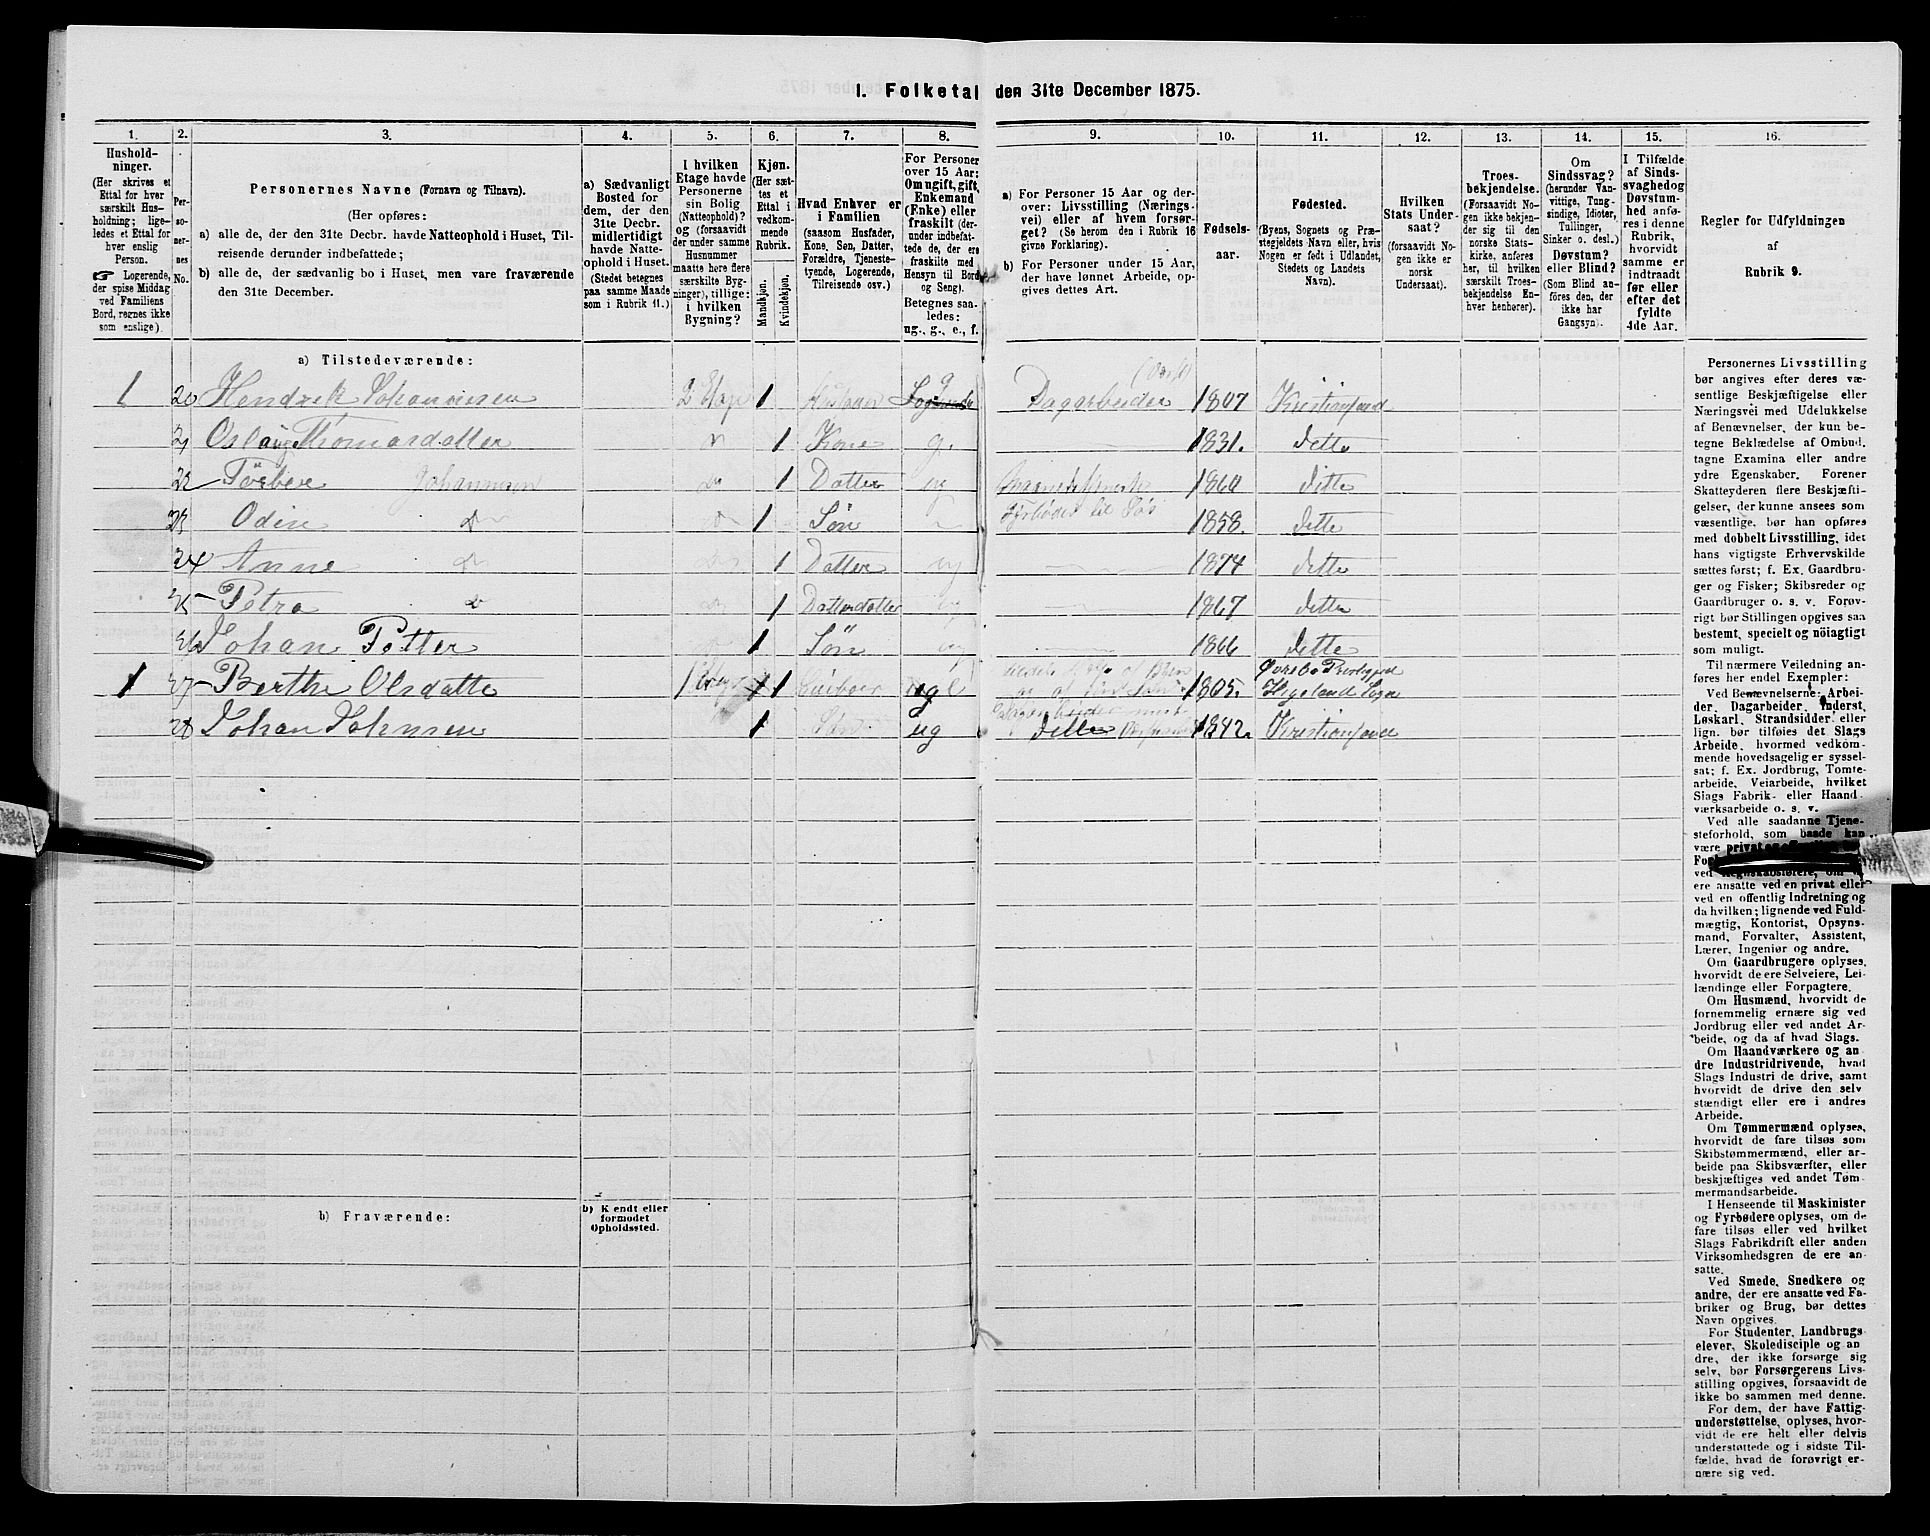 I. Folketal den 31te December 1875.
1. 2. 3. 4. 5. 6. 7. 8. 9. 10. 11. 12. 13. 14. 15. 16.
Hushold-
ninger.
(Her skrives et
Ettal for hver
særskilt Hus-
holdning; lige-
ledes et Ettal for
hver enslig
Person.
☞ Logerende,
der spise Middag
ved Familiens
Bord, regnes ikke
som enslige).
Per-
so-
ner-
nes
No.
Personernes Navne (Fornavn og Tilnavn).
(Her opføres:
a) alle de, der den 31te Decbr. havde Natteophold i Huset, Til-
reisende derunder indbefattede;
b) alle de, der sædvanlig bo i Huset, men vare fraværende
den 31te December.
a) Sædvanligt
Bosted for
dem, der den
31te Decbr.
midlertidigt
havde Natte-
ophold i Huset.
(Stedet betegnes
paa samme Maade
som i Rubrik 11.)
I hvilken
Etage havde
Personerne
sin Bolig
(Natteophold)?
og (forsaavidt
der under samme
Husnummer
maatte høre flere
særskilte Byg-
ninger), tillige:
i hvilken
Bygning?
Kjøn.
(Her sæt-
tes et
Ettal i
vedkom-
mende
Rubrik.
Mandkjøn.
Kvindekjøn.
Hvad Enhver er
i Familien
(saasom Husfader,
Kone, Søn, Datter,
Forældre, Tjeneste-
tyende, Logerende,
Tilreisende osv.)
For Personer
over 15 Aar:
Om ugift, gift,
Enkemand
(Enke) eller
fraskilt (der-
under indbefat-
tede de, der ere
fraskilte med
Hensyn til Bord
og Seng).
Betegnes saa-
ledes:
ug., g., e., f.
a) For Personer 15 Aar og der-
over: Livsstilling (Nærings-
vei) eller af hvem forsør-
get? (Se herom den i Rubrik 16
givne Forklaring).
b) For Personer under 15 Aar,
der have lønnet Arbeide, op-
gives dettes Art.
Fødsels-
aar.
Fødested.
(Byens, Sognets og Præ-
stegjeldets Navn eller, hvis
Nogen er født i Udlandet,
Stedets og Landets
Navn).
Hvilken
Stats Under-
saat?
(forsaavidt No-
gen ikke er
norsk
Undersaat).
Troes-
bekjendelse.
(Forsaavidt No-
gen ikke bekjen-
der sig til den
norske Stats-
kirke, anføres
her, til hvilken
særskilt Troes-
bekjendelse En-
hver henhører).
Om
Sindssvag?
(herunder Van-
vittige, Tung-
sindige, Idioter,
Tullinger,
Sinker o. desl.)
Døvstum?
eller Blind?
(Som Blind an-
føres den, der
ikke har
Gangsyn).
I Tilfælde
af Sinds-
svaghed og
Døvstum-
hed anfø-
res i denne
Rubrik,
hvorvidt
samme er
indtraadt
før eller
efter det
fyldte
4de Aar.
Regler for Udfyldningen
af
Rubrik 9.
a) Tilstedeværende:
1 20 Hendrik Johannesen 2 Etage 1 g Dagarbeider 1807 Kristiansand
21 Thomasdatter 1 Kone g. 1831. ditto
22 Johannesen 1 Datter ug 1860 ditto
23 Odin 1 Søn 1858. ditto
24 Anne 1 Datter ug 1874 ditto
25 Petra 1 Datterdatter ug 1867 ditto
26 Johan Petter 1 Søn ug 1866 ditto
1 27 Berthe Olsdatter 1 1805. Øvrebo Hegeland Sogn
28 Johan Johnsen 1 Søn ug 1842. Kristiansand
b) Fraværende:
b) Kjendt eller
formodet
Opholdssted.
Personernes Livsstilling
bør angives efter deres væ-
sentlige Beskjæftigelse eller
Næringsvei med Udelukkelse
af Benævnelser, der kun be-
tegne Beklædelse af Ombud,
tagne Examina eller andre
ydre Egenskaber. Forener
Skatteyderen flere Beskjæfti-
gelser, der kunne ansees som
væsentlige, bør han opføres
med dobbelt Livsstilling, idet
hans vigtigste Erhvervskilde
sættes først; f. Ex. Gaardbru-
ger og Fisker; Skibsreder og
Gaardbruger o. s. v. Forøv-
rigt bør Stillingen opgives saa
bestemt, specielt og nøiagtigt
som muligt.
Til nærmere Veiledning an-
føres her endel Exempler:
Ved Benævnelserne: Arbei-
der, Dagarbeider, Inderst,
Løskarl, Strandsidder eller
lign. bør tilføies det Slags
Arbeide, hvormed vedkom-
mende hovedsagelig er syssel-
sat; f. Ex. Jordbrug, Tomte-
arbeide, Veiarbeide, hvilket
Slags Fabrik- eller Haand-
værksarbeide o. s. v.
Ved alle saadanne Tjene-
steforhold, som baade kan
være privat og
ved Regnskabsførere, om
ere ansatte ved en privat eller
ved en offentlig Indretning og
da hvilken; lignende ved Fuld-
mægtig, Kontorist, Opsyns-
mand, Forvalter, Assistent,
Lærer, Ingeniør og andre.
Om Gaardbrugere oplyses,
hvorvidt de ere Selveiere, Lei-
lændinge eller Forpagtere.
Om Husmænd, hvorvidt de
fornemmelig ernære sig ved
Jordbrug eller ved andet Ar-
beide, og da af hvad Slags.
Om Haandværkere og an-
dre Industridrivende, hvad
Slags Industri de drive, samt
hvorvidt de drive den selv-
stændigt eller ere i andres
Arbeide.
Om Tømmermænd oplyses,
hvorvidt de fare tilsøs som
Skibstømmermænd, eller ar-
beide paa Skibsværfter, eller
beskjæftiges ved andet Tøm-
mermandsarbeide.
I Henseende til Maskinister
og Fyrbødere oplyses, om de
fare tilsøs eller ved hvilket
Slags Fabrikdrift eller anden
Virksomhedsgren de ere an-
satte.
Ved Smede, Snedkere og
andre, der ere ansatte ved Fa-
briker og Brug, bør dettes
Navn opgives.
For Studenter, Landbrugs-
elever, Skoledisciple og an-
dre, der ikke forsørge sig
selv, bør Forsørgerens Livs-
stilling opgives, forsaavidt de
ikke bo sammen med denne.
For dem, der have Fattig-
understøttelse, oplyses, hvor-
vidt de ere helt eller delvis
understøttede og i sidste Til-
fælde, hvad de forøvrigt er-
nære sig ved.